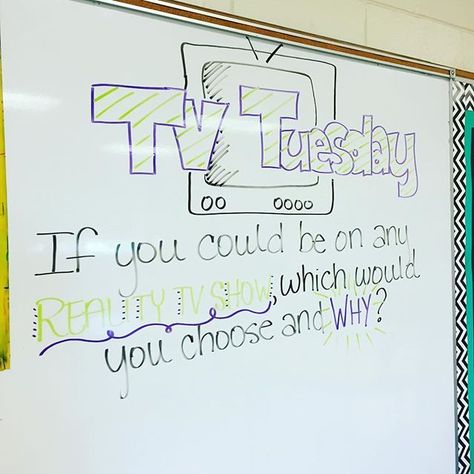 TV Tuesday
If you could be on any
REALITY TV SHOW, which would
you choose and WHY?